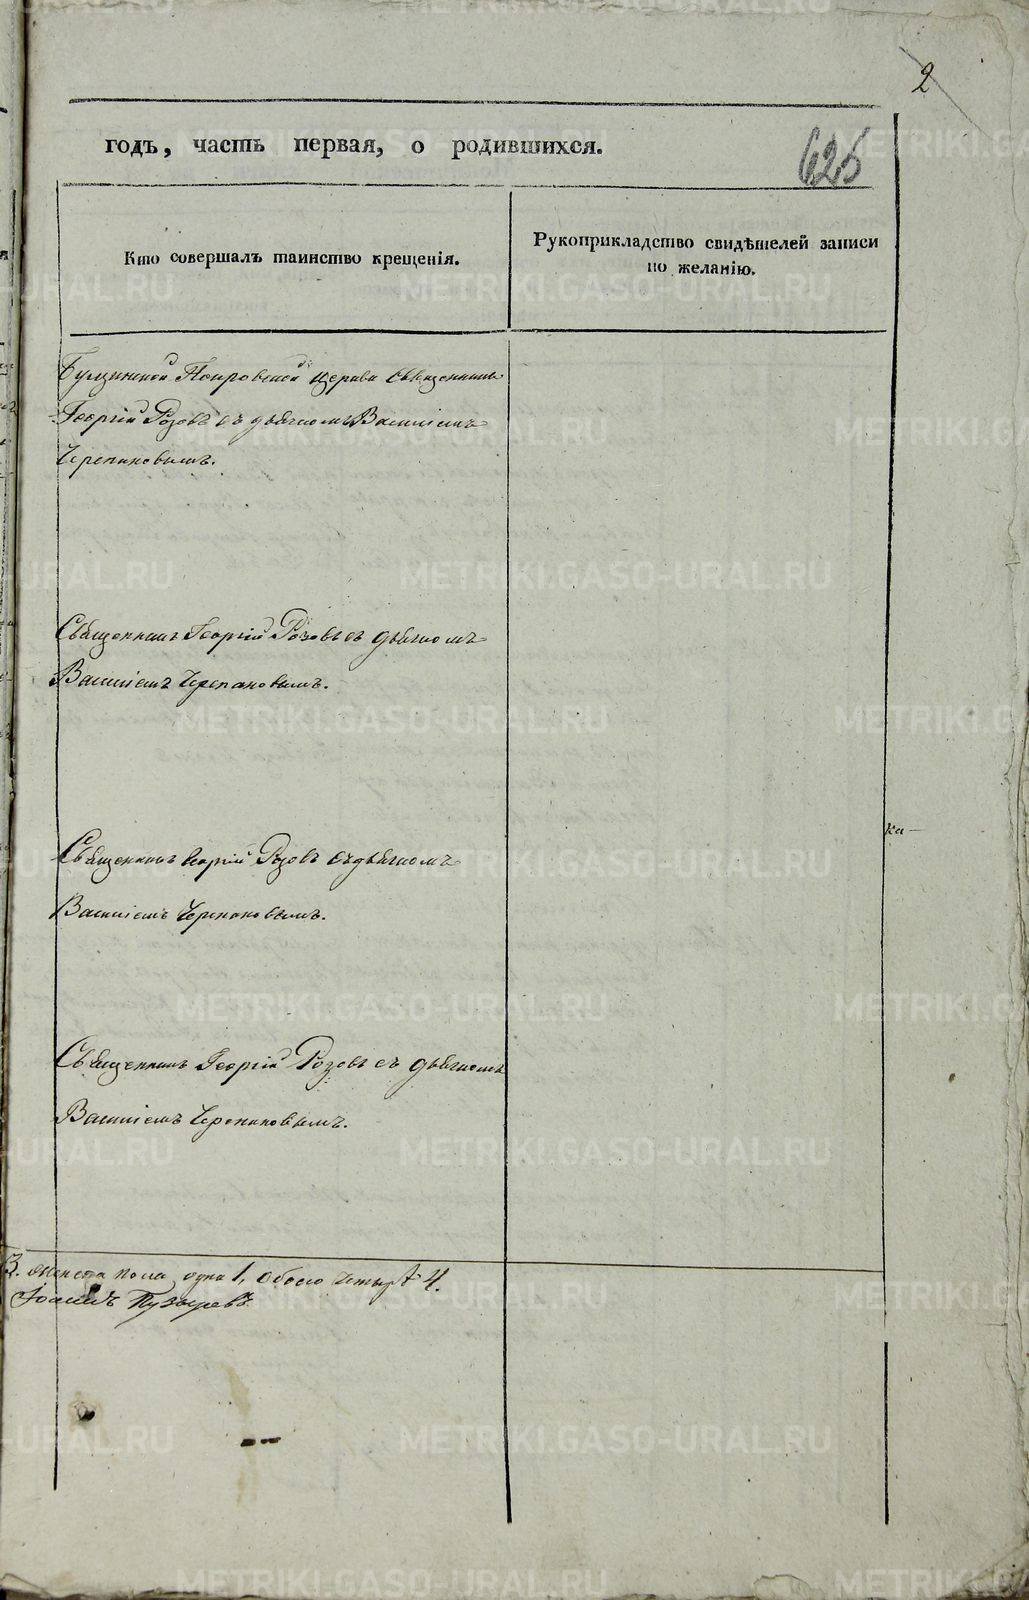 2
625
годъ, часть первая, о родившихся.
Кто совершалъ таинство крещенія.
Рукоприкладство свидѣтелей записи
по желанію.
Покровской церкви Священникъ
Георгій Розовъ съ дьячкомъ Василіемъ
Черепановымъ.
Священникъ Георгій Розовъ съ дьячкомъ
Василіемъ Черепановымъ.
ка—
Священникъ Георгій Розовъ съ дьячкомъ
Василіемъ Черепановымъ.
Священникъ Георгій Розовъ съ дьячкомъ
Василіемъ Черепановымъ.
3. женска пола одна 1, обоего четыре 4.
Іоаннъ Пузыревъ
METRIKI.GASO-URAL.RU